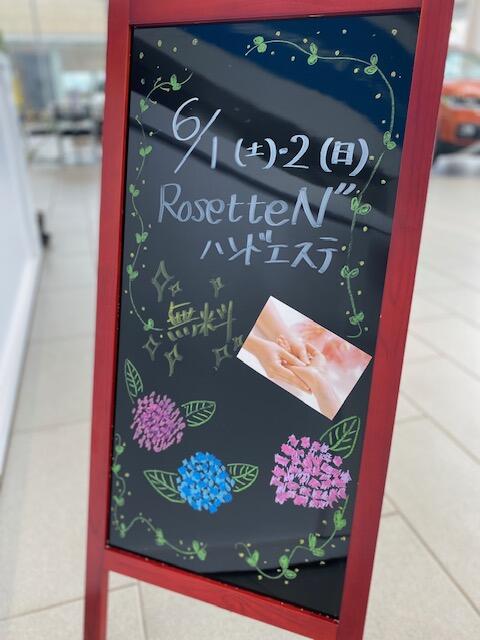 6/1(土)-2(日)
RosetteN"
ハンドエステ
無料